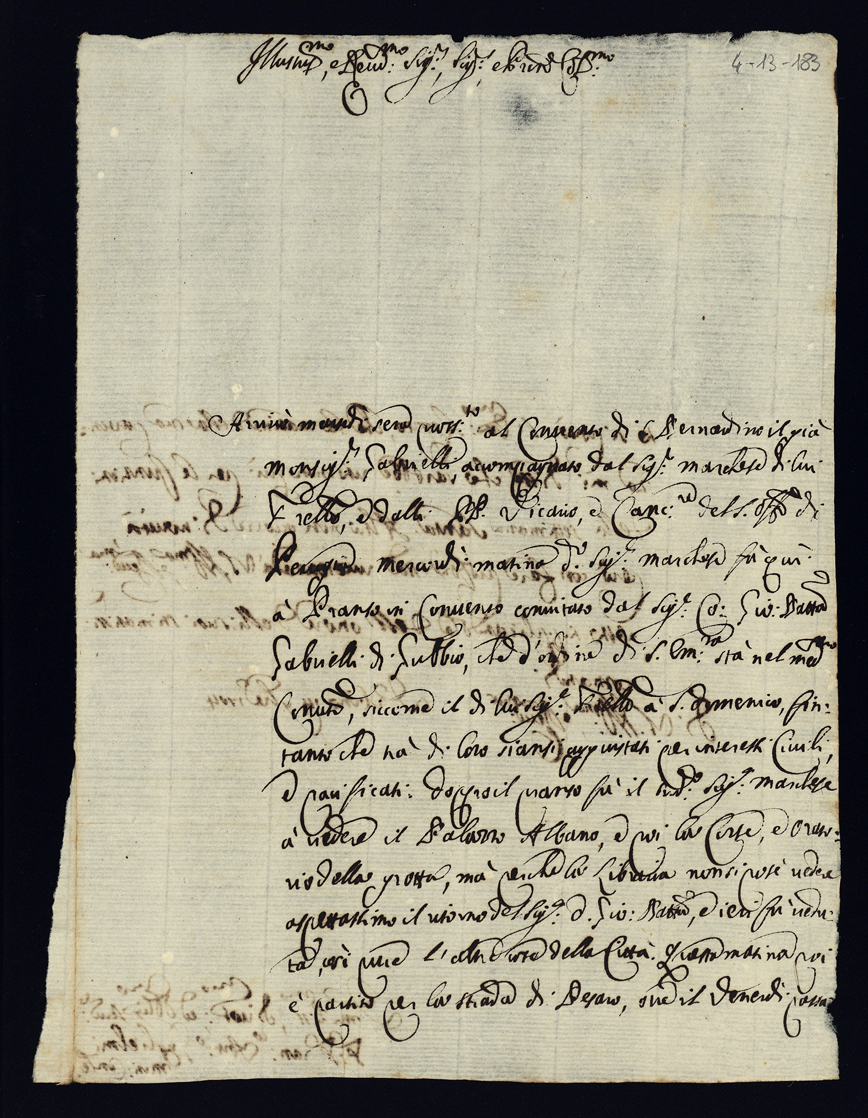 4-13-183
Illustr.mo, e Rev.mo Sig.r, Sig.r, e P.ron Col.mo
Arrivò martedì sera pross.to al Convento di S. Bernardino il già
Monsig.r Gabrielli, accompagnato dal Sig.r Marchese di lui
Fratello, e dalli PP. Vicario, e Canc.re del S. Off.o di
Perugia mercordì matina d.o Sig.r Marchese fù quì
à Pranso in Convento convitato dal Sig.r Co: Gio: Batta
Gabrielli di Gubbio, che d'ordine di S. Em.za stà nel med.mo
Conv.to, siccome il di lui Sig.r Fratello à S. Domenico, fin-
tanto che trà di loro siansi aggiustati per interessi Civili,
e pacificati: doppo il pranso fù il sud.o Sig.r Marchese
à vedere il Palazzo Albano, e poi la Corte, e Orato-
rio della grotta, mà perche la Libraria non si potè vedere
aspettassimo il ritorno del Sig.r D. Gio: Batta, e ieri fù vedu-
ta, così pure l'altre cose della Città. Questa matina poi
è partito per la strada di Pesaro, ove il Venerdì passa